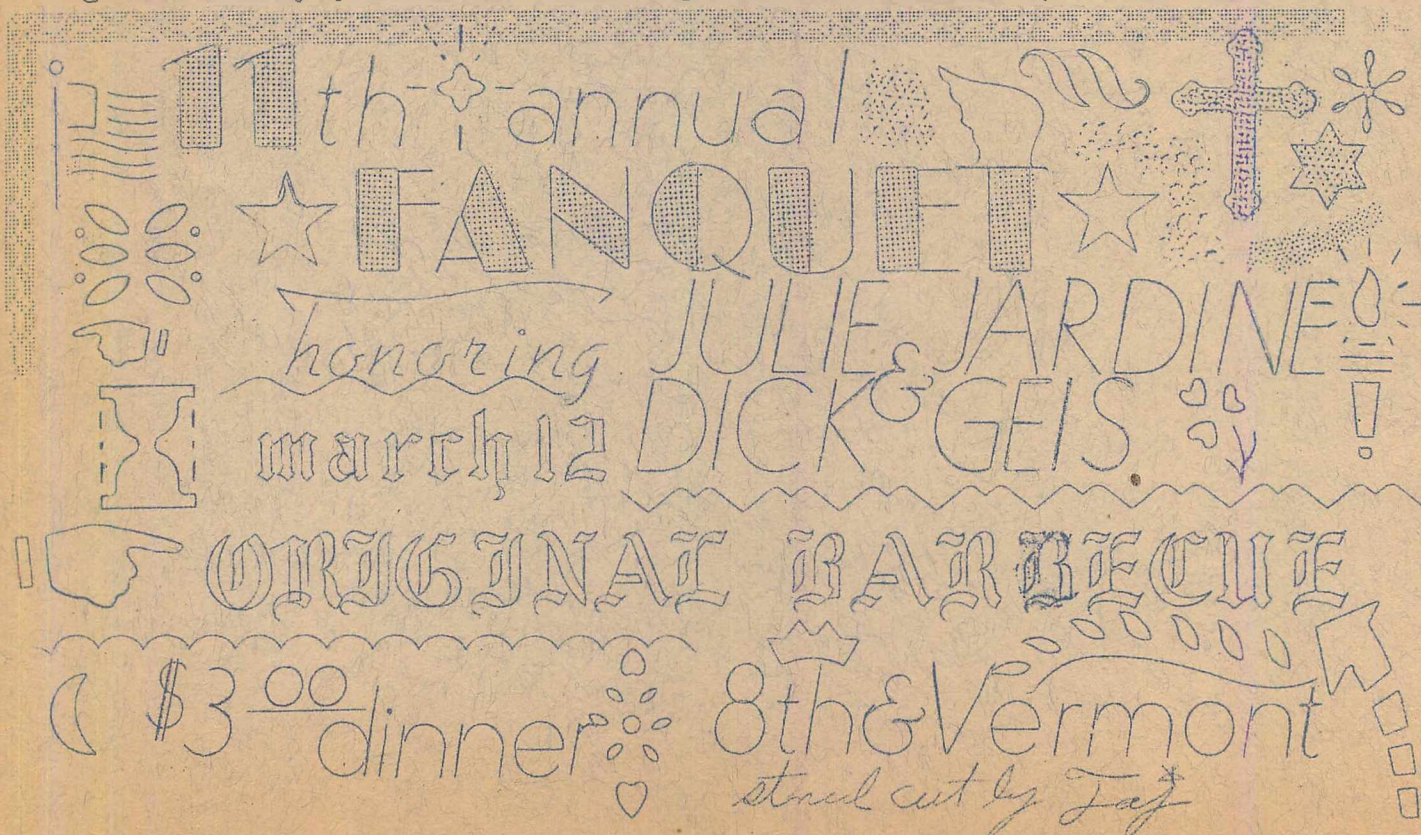 11th annual
FANQUET
honoring JULIE JARDINE
& DICK GEIS.
march 12
ORIGINAL BARBECUE
$3 00 dinner 8th & Vermont
stencil cut by Taj